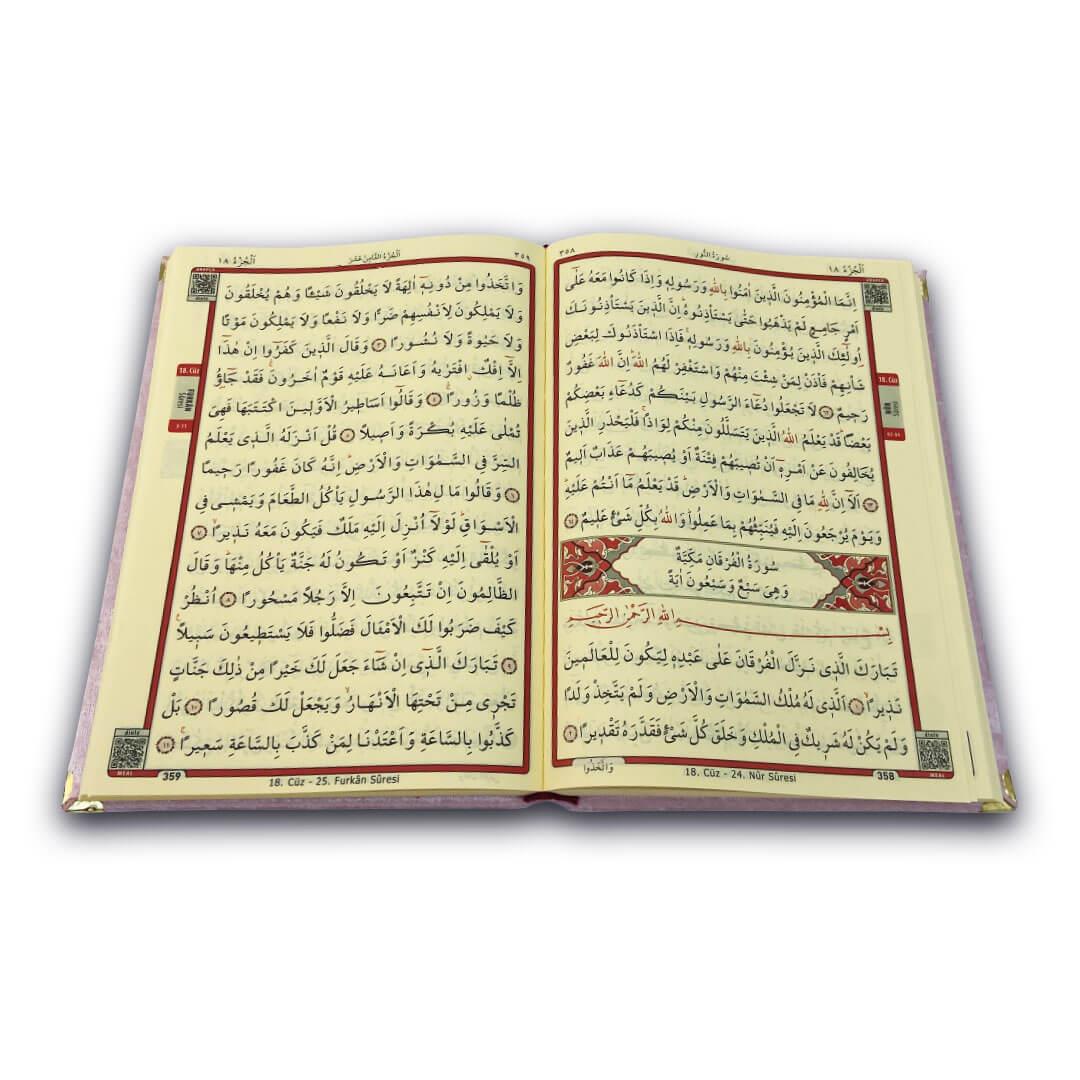 اَلْجُزْءُ ١٨
سُورَةُ النُّورِ
٣٥٨
اِنَّمَا الْمُؤْمِنُونَ الَّذٖينَ اٰمَنُوا بِاللّٰهِ وَرَسُولِهٖ وَاِذَا كَانُوا مَعَهُ عَلٰٓى
اَمْرٍ جَامِعٍ لَمْ يَذْهَبُوا حَتّٰى يَسْتَأْذِنُوهُؕ اِنَّ الَّذٖينَ يَسْتَأْذِنُونَكَ
اُو۬لٰٓئِكَ الَّذٖينَ يُؤْمِنُونَ بِاللّٰهِ وَرَسُولِهٖۚ فَاِذَا اسْتَأْذَنُوكَ لِبَعْضِ
شَأْنِهِمْ فَأْذَنْ لِمَنْ شِئْتَ مِنْهُمْ وَاسْتَغْفِرْ لَهُمُ اللّٰهَؕ اِنَّ اللّٰهَ غَفُورٌ
رَحٖيمٌ ﴿٦٢﴾ لَا تَجْعَلُوا دُعَٓاءَ الرَّسُولِ بَيْنَكُمْ كَدُعَٓاءِ بَعْضِكُمْ
بَعْضًاؕ قَدْ يَعْلَمُ اللّٰهُ الَّذٖينَ يَتَسَلَّلُونَ مِنْكُمْ لِوَاذًاۚ فَلْيَحْذَرِ الَّذٖينَ
يُخَالِفُونَ عَنْ اَمْرِهٖٓ اَنْ تُصٖيبَهُمْ فِتْنَةٌ اَوْ يُصٖيبَهُمْ عَذَابٌ اَلٖيمٌ
﴿٦٣﴾ اَلَٓا اِنَّ لِلّٰهِ مَا فِي السَّمٰوَاتِ وَالْاَرْضِؕ قَدْ يَعْلَمُ مَٓا اَنْتُمْ عَلَيْهِؕ
وَيَوْمَ يُرْجَعُونَ اِلَيْهِ فَيُنَبِّئُهُمْ بِمَا عَمِلُواؕ وَاللّٰهُ بِكُلِّ شَيْءٍ عَلٖيمٌ ﴿٦٤﴾
سُورَةُ الْفُرْقَانِ مَكِّيَّةٌ
وَهِيَ سَبْعٌ وَسَبْعُونَ اٰيَةً
بِسْمِ اللّٰهِ الرَّحْمٰنِ الرَّحٖيمِ
تَبَارَكَ الَّذٖي نَزَّلَ الْفُرْقَانَ عَلٰى عَبْدِهٖ لِيَكُونَ لِلْعَالَمٖينَ
نَذٖيرًاۙ ﴿١﴾ اَلَّذٖي لَهُ مُلْكُ السَّمٰوَاتِ وَالْاَرْضِ وَلَمْ يَتَّخِذْ وَلَدًا
وَلَمْ يَكُنْ لَهُ شَرٖيكٌ فِي الْمُلْكِ وَخَلَقَ كُلَّ شَيْءٍ فَقَدَّرَهُ تَقْدٖيرًا ﴿٢﴾
وَاتَّخَذُوا
18. Cüz - 24. Nûr Sûresi
358
18. Cüz
NÛR
Sûresi
MEAL
اَلْجُزْءُ ١٨
اَلْجُزْءُ الثَّامِنُ عَشَرَ
٣٥٩
وَاتَّخَذُوا مِنْ دُونِهٖٓ اٰلِهَةً لَا يَخْلُقُونَ شَيْـًٔا وَهُمْ يُخْلَقُونَ
وَلَا يَمْلِكُونَ لِاَنْفُسِهِمْ ضَرًّا وَلَا نَفْعًا وَلَا يَمْلِكُونَ مَوْتًا
وَلَا حَيٰوةً وَلَا نُشُورًا ﴿٣﴾ وَقَالَ الَّذٖينَ كَفَرُٓوا اِنْ هٰذَٓا
اِلَّٓا اِفْكٌۨ افْتَرٰيهُ وَاَعَانَهُ عَلَيْهِ قَوْمٌ اٰخَرُونَۚ فَقَدْ جَٓاؤُ۫
ظُلْمًا وَزُورًاۚ ﴿٤﴾ وَقَالُٓوا اَسَاطٖيرُ الْاَوَّلٖينَ اكْتَتَبَهَا فَهِيَ
تُمْلٰى عَلَيْهِ بُكْرَةً وَاَصٖيلًا ﴿٥﴾ قُلْ اَنْزَلَهُ الَّذٖي يَعْلَمُ
السِّرَّ فِي السَّمٰوَاتِ وَالْاَرْضِؕ اِنَّهُ كَانَ غَفُورًا رَحٖيمًا
﴿٦﴾ وَقَالُوا مَالِ هٰذَا الرَّسُولِ يَأْكُلُ الطَّعَامَ وَيَمْشٖي فِي
الْاَسْوَاقِؕ لَوْلَٓا اُنْزِلَ اِلَيْهِ مَلَكٌ فَيَكُونَ مَعَهُ نَذٖيرًاۙ ﴿٧﴾
اَوْ يُلْقٰٓى اِلَيْهِ كَنْزٌ اَوْ تَكُونُ لَهُ جَنَّةٌ يَأْكُلُ مِنْهَاؕ وَقَالَ
الظَّالِمُونَ اِنْ تَتَّبِعُونَ اِلَّا رَجُلًا مَسْحُورًا ﴿٨﴾ اُنْظُرْ
كَيْفَ ضَرَبُوا لَكَ الْاَمْثَالَ فَضَلُّوا فَلَا يَسْتَطٖيعُونَ سَبٖيلًا۟
﴿٩﴾ تَبَارَكَ الَّذٖٓي اِنْ شَٓاءَ جَعَلَ لَكَ خَيْرًا مِنْ ذٰلِكَ جَنَّاتٍ
تَجْرٖي مِنْ تَحْتِهَا الْاَنْهَارُۙ وَيَجْعَلْ لَكَ قُصُورًا ﴿١٠﴾ بَلْ
كَذَّبُوا بِالسَّاعَةِ وَاَعْتَدْنَا لِمَنْ كَذَّبَ بِالسَّاعَةِ سَعٖيرًاۚ ﴿١١﴾
359
18. Cüz - 25. Furkân Sûresi
18. Cüz
FURKÂN
Sûresi
MEAL